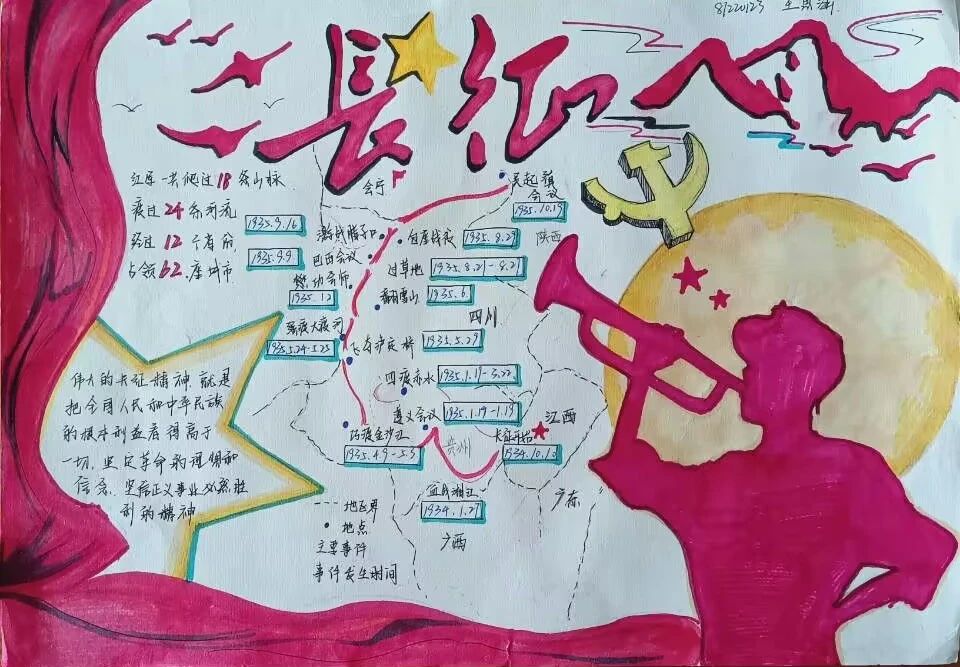 8J220123 王
長征
红军一共爬过18条山脉
渡过24条河流
经过12个省份
占领62座城市
会宁
吴起镇
会议
1935.10.19
陕西
1935.9.16
激战腊子口
包座战役
1935.8.29
1935.9.9
巴西会议
过草地
1935.8.21-8.21
懋功会师
1935.12
翻雪山
1935.6
四川
强渡大渡河
1935.5.24-5.25
飞夺泸定桥
1935.5.29
四渡赤水
1935.1.19-3.22
遵义会议
1935.1.19-1.19
江西
巧渡金沙江
1935.4.9-5.3
贵州
长征开始
1934.10.10
血战湘江
1934.1.27
广西
广东
地区界
地点
主要事件
事件发生时间
伟大的长征精神,就是
把全国人民和中华民族
的根本利益看得高于
一切,坚定革命的理想和
信念,坚信正义事业必然胜
利的精神